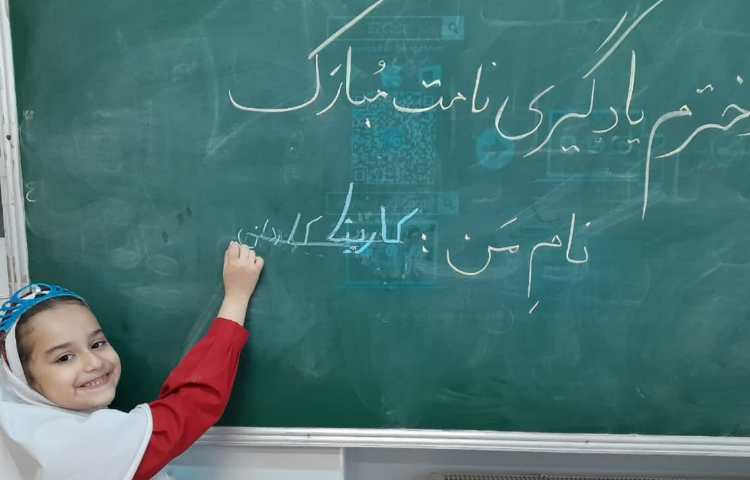 دخترم یادگیری نامت مُبارَک
نامِ مَن : کارینا کاردانی